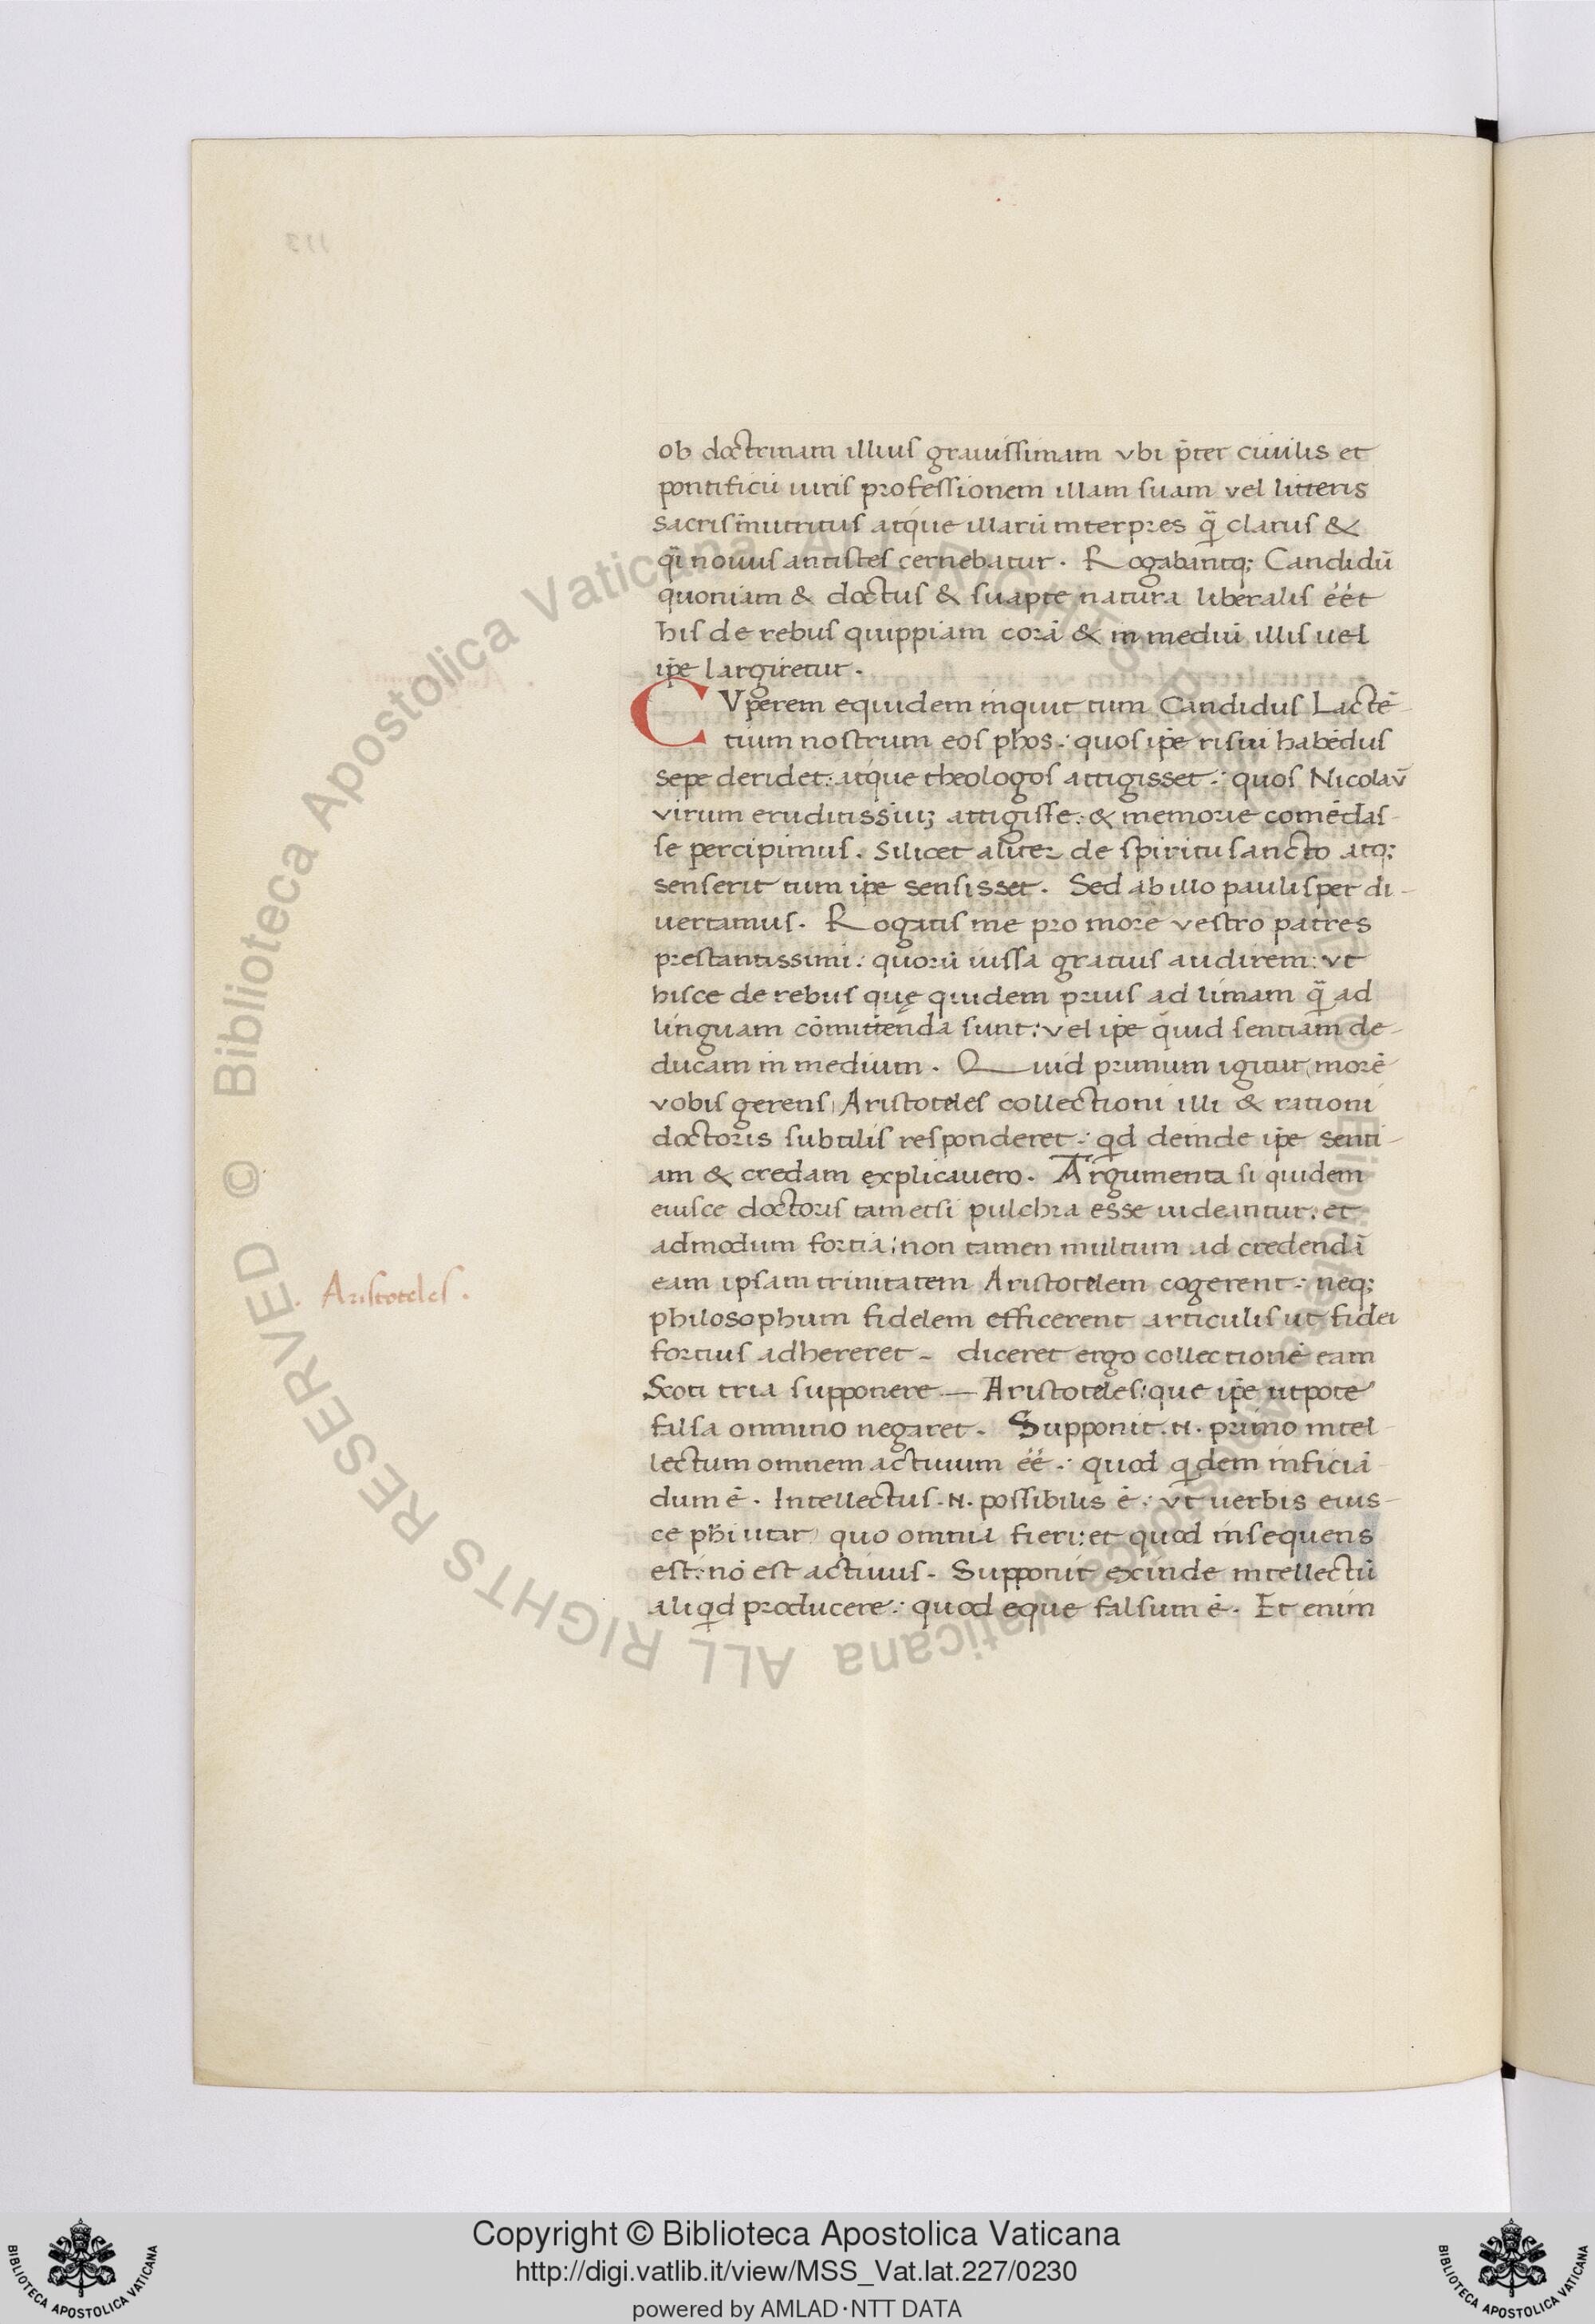 ob doctrinam illius grauissimam vbi p̄ter ciuilis et
pontificiū iuris professionem illam suam vel litteris
sacris innutritus atque illarū interpres q̄ clarus &
q̄ nouus antistes cernebatur. Rogabantq; Candidū
quoniam & doctus & suapte natura liberalis eēt
his de rebus quippiam corā & in mediū illis uel
ip̄e largiretur.
CVperem equidem inquit tum Candidus Lactē-
tium nostrum eos ph̄os: quos ip̄e risui habēdus
sepe deridet: atque theologos attigisset: quos Nicolaū
virum eruditissiuȝ attigisse: & memorie comēdas-
se percipimus. Silicet aliter de spiritu sancto atq;
senserit tum ip̄e sensisset. Sed ab illo paulisper di-
uertamus. Rogatis me pro more vestro patres
prestantissimi: quorū iussa gratius audirem: vt
hisce de rebus quę quidem prius ad limam q̄ ad
linguam cōmittenda sunt: vel ip̄e quid sentiam de-
ducam in medium. Quid primum igitur (morē
vobis gerens) Aristoteles collectioni illi & rationi
doctoris subtilis responderet: qd deinde ip̄e senti-
am & credam explicauero. Argumenta si quidem
eiusce doctoris tametsi pulchra esse uideantur: et
admodum fortia: non tamen multum ad credendā
eam ipsam trinitatem Aristotelem cogerent: neq;
philosophum fidelem efficerent articulis ut fidei
fortius adhereret. diceret ergo collectionē eam
Scoti tria supponere — Aristoteles: que ip̄e utpote
falsa omnino negaret. Supponit .N. primo intel-
lectum omnem actiuum eē: quod qdem inficiā-
dum ē. Intellectus .N. possibilis ē: vt uerbis eius-
ce ph̄i utar) quo omnia fieri: et quod insequens
est: nō est actiuus. Supponit exinde intellectū
aliqd producere: quod eque falsum ē. Et enim
. Aristoteles.
Copyright © Biblioteca Apostolica Vaticana
http://digi.vatlib.it/view/MSS_Vat.lat.227/0230
powered by AMLAD·NTT DATA